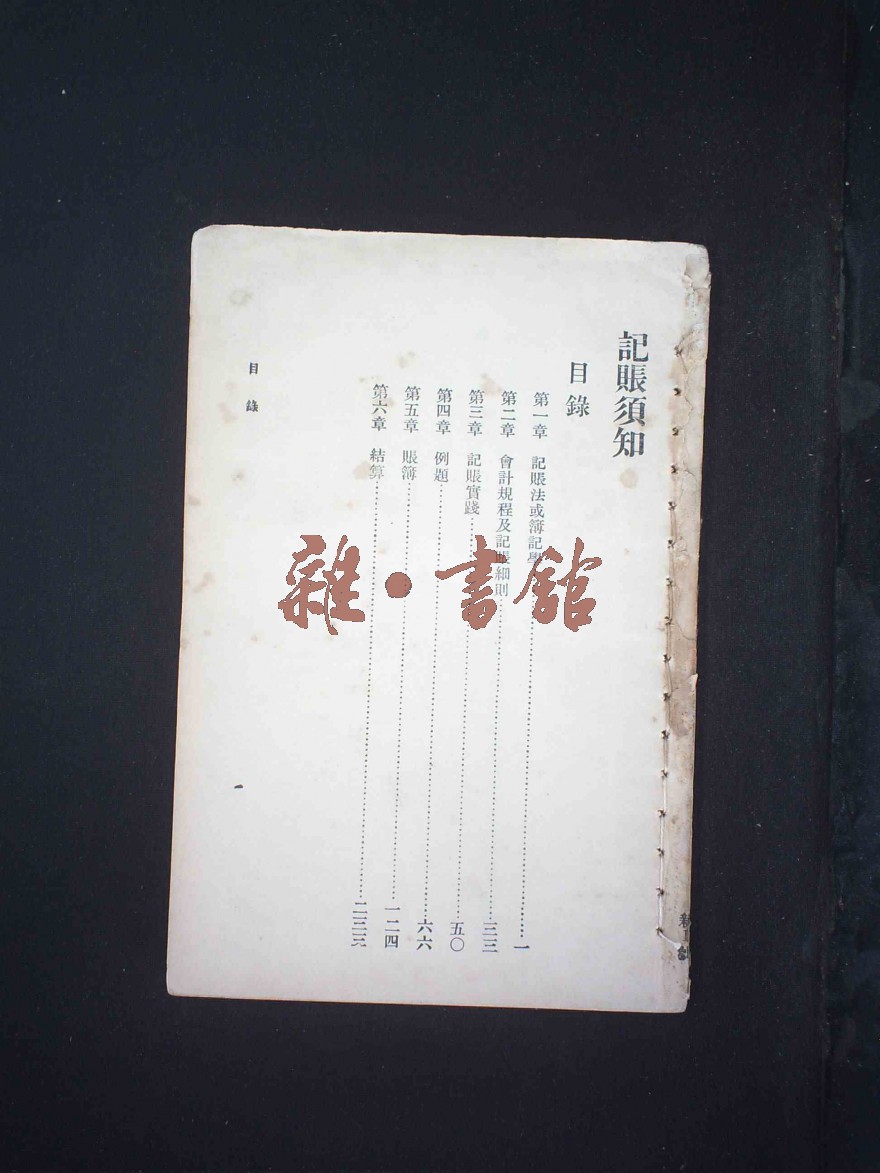 記賬須知
目錄
第一章 記賬法或簿記學……一
第二章 會計規程及記賬細則……三三
第三章 記賬實踐……五〇
第四章 例題……六六
第五章 賬簿……一二四
第六章 結算……二三三
目錄
一
雜·書館